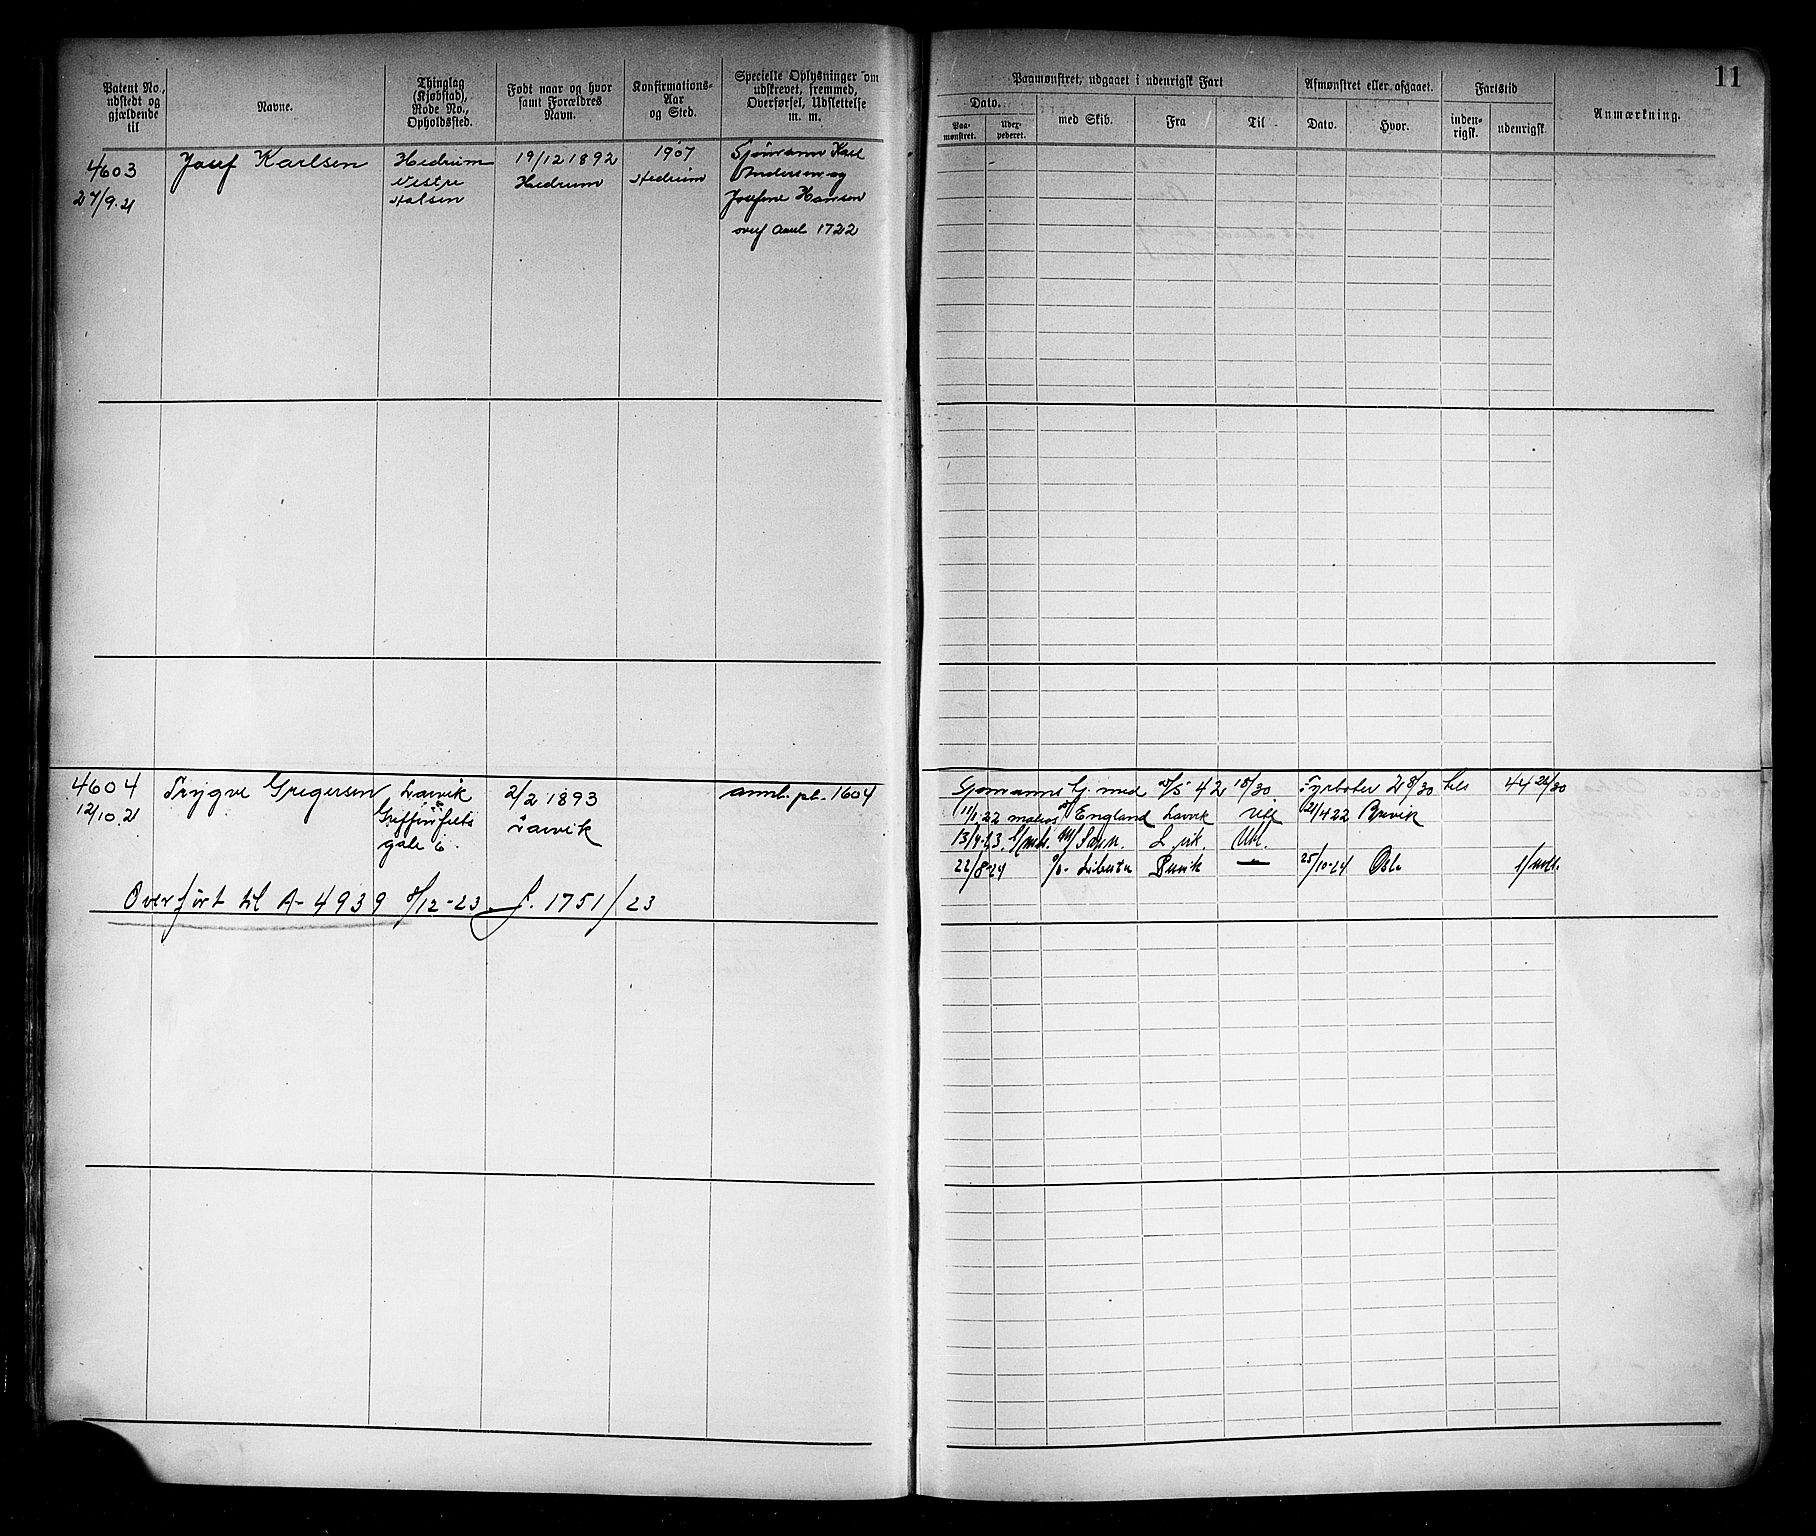 11
Patent No., udstedt og gjældende til
Navne.
Thinglag (Kjøbstad), Rode No., Opholdssted.
Født naar og hvor samt Forældres Navn.
Konfirmations-Aar og Sted.
Specielle Oplysninger om udskrevet, fremmed, Overførsel, Udslettelse m. m.
Paamønstret, udgaaet i udenrigsk Fart
Dato.
Paa-mønstret.
Udex-pederet.
med Skib.
Fra
Til
Afmønstret eller afgaaet.
Dato.
Hvor.
Fartstid
inden-rigsk.
udenrigsk
Anmærkning.
4603
27/9.21
Josef Karlsen
Hedrum
Vestre
Halsen
19/12 1892
Hedrum
1907
Hedrum
Sjømann Karl
Andersen og
Josefine Hansen
overf Annl 1722
4604
12/10.21
Trygve Gregersen
Larvik
Griffenfelts
gate 6
2/2 1893
Larvik
annl. pl. 1604
Overført til A-4939 8/12-23. J. 1751/23
Sjømanns
med
42 18/30
Fyrbøter 28/30
44 26/30
11/1.22 matros England Larvik
21/4 22 Brevik
13/4-23.
22/8-24
Brevik —
25/10-24 Oslo